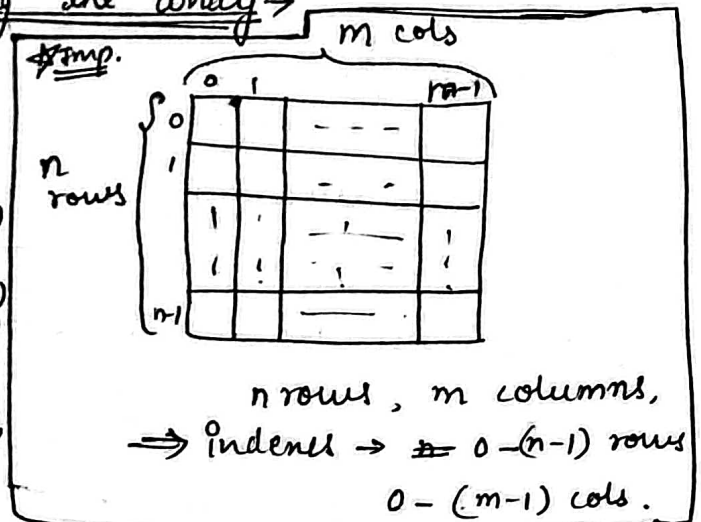 the array →
* Imp.
m cols
0 1 m-1
0
1
n
rows
n-1
n rows, m columns,
⇒ indexes → 0-(n-1) rows
0 - (m-1) cols.